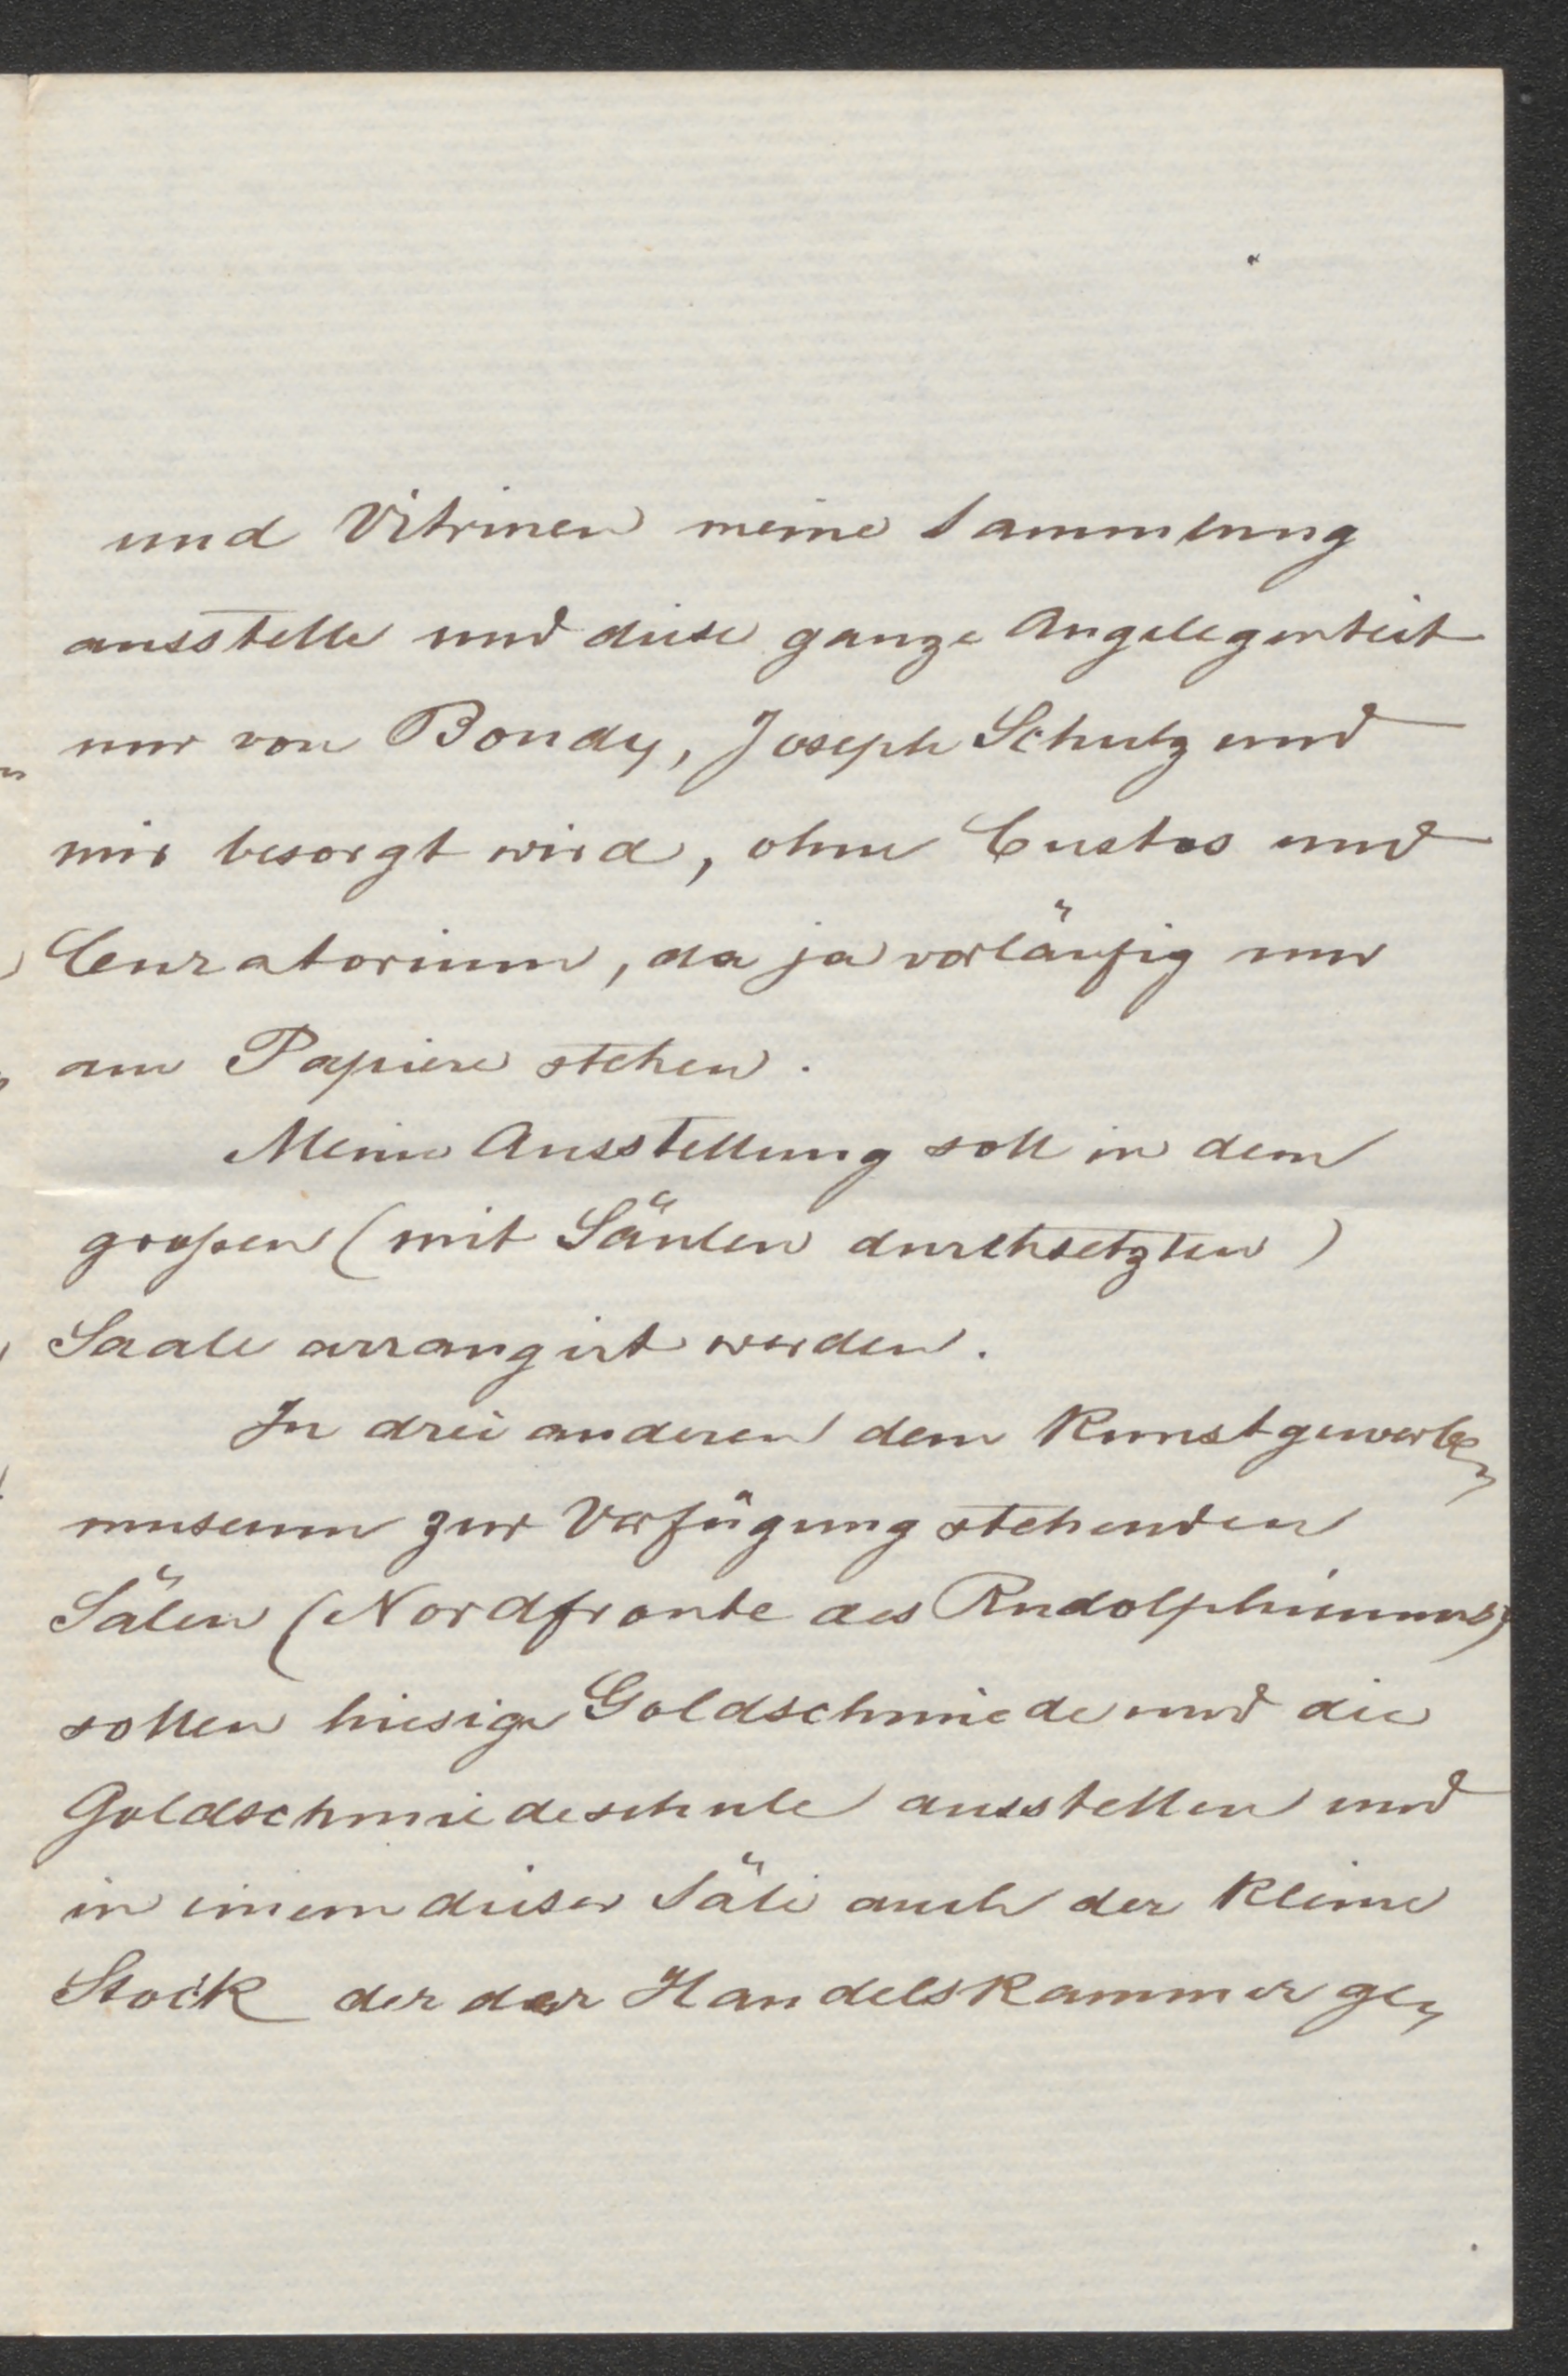 und Vitrinen meine Sammlung
ausstelle und diese ganze Angelegenheit
nur von Bondy, Joseph Schulz und
mir besorgt wird, ohne Custos und
Curatorium, da ja vorläufig nur
am Papiere stehen.
Meine Ausstellung soll in dem
großen (mit Säulen durchsetzten)
Saale arrangirt werden.
In drei anderen dem Kunstgewerbe-
museum zur Verfügung stehenden
Sälen (Nordfronte des Rudolphinums)
sollen hiesige Goldschmiede und die
Goldschmiedeschule ausstellen und
in einem dieser Säle auch der kleine
Stock der der Handelskammer ge-